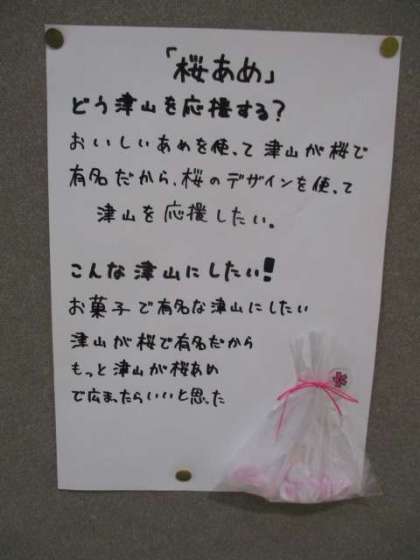 「桜あめ」
どう津山を応援する?
おいしいあめを使って津山が桜で
有名だから、桜のデザインを使って
津山を応援したい。
こんな津山にしたい!
お菓子で有名な津山にしたい
津山が桜で有名だから
もっと津山が桜あめ
で広まったらいいと思った